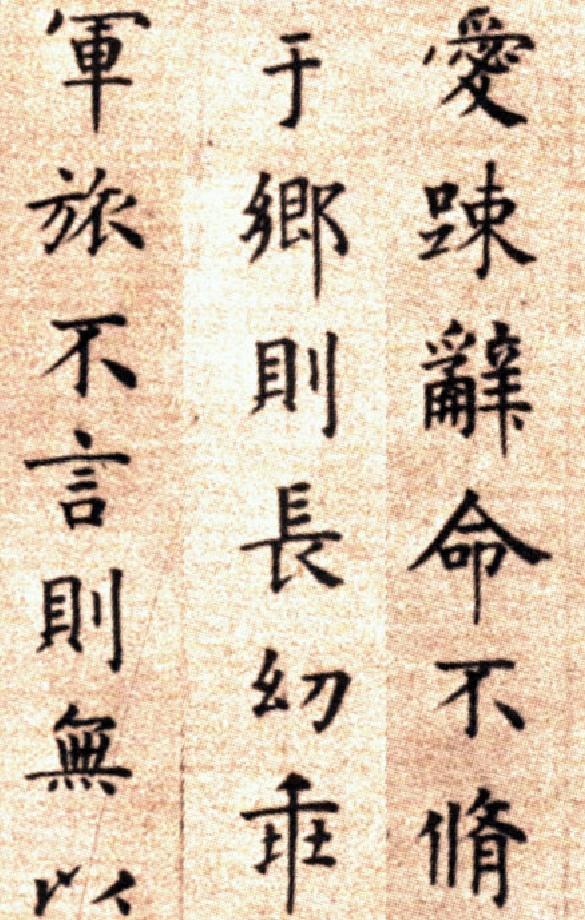 愛踈辭命不脩
于鄉則長幼乖
軍旅不言則無以